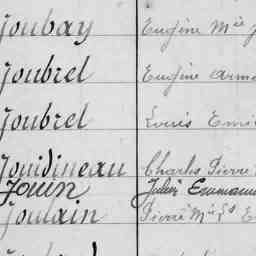 Joubay Eugène Mie J
Joubrel Eugène Arma
Joubrel Louis Emi
Jouidineau Charles Pierre
Jouin Julien Emmanu
Joulain Pierre M E